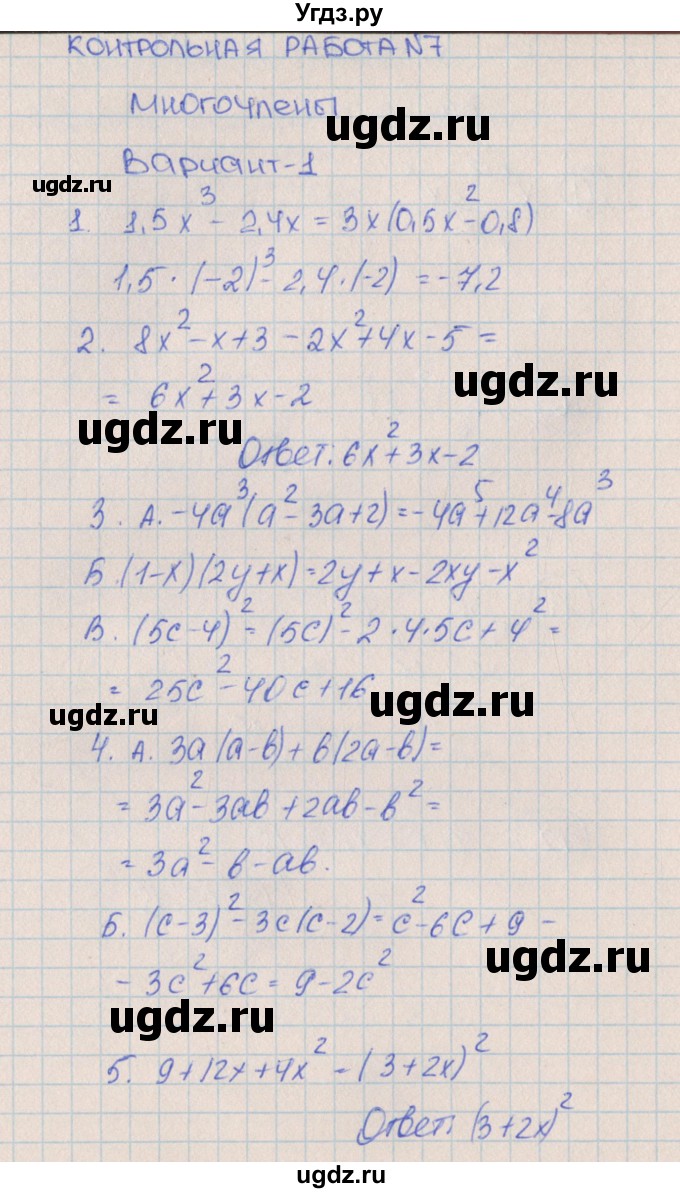 Угдз.ру
КОНТРОЛЬНАЯ РАБОТА №7
Многочлены
ugdz.ru
Вариант-1
ugdz.ru
1. 1,5x³ - 2,4x = 3x(0,5x² - 0,8)
1,5 · (-2)³ - 2,4 · (-2) = -7,2
2. 8x² - x + 3 - 2x² + 4x - 5 =
ugdz.ru
= 6x² + 3x - 2
ugdz.ru
Ответ: 6x² + 3x - 2
3. А. -4a³(a² - 3a + 2) = -4a⁵ + 12a⁴ - 8a³
Б. (1-x)(2y+x) = 2y + x - 2xy - x²
В. (5c-4)² = (5c)² - 2 · 4 · 5c + 4² =
= 25c² - 40c + 16
ugdz.ru
ugdz.ru
4. А. 3a(a-в) + в(2a-в) =
= 3a² - 3aв + 2aв - в² =
= 3a² - в - aв.
Б. (c-3)² - 3c(c-2) = c² - 6c + 9 -
ugdz.ru
- 3c² + 6c = 9 - 2c²
ugdz.ru
5. 9 + 12x + 4x² = (3 + 2x)²
Ответ: (3 + 2x)²
ugdz.ru